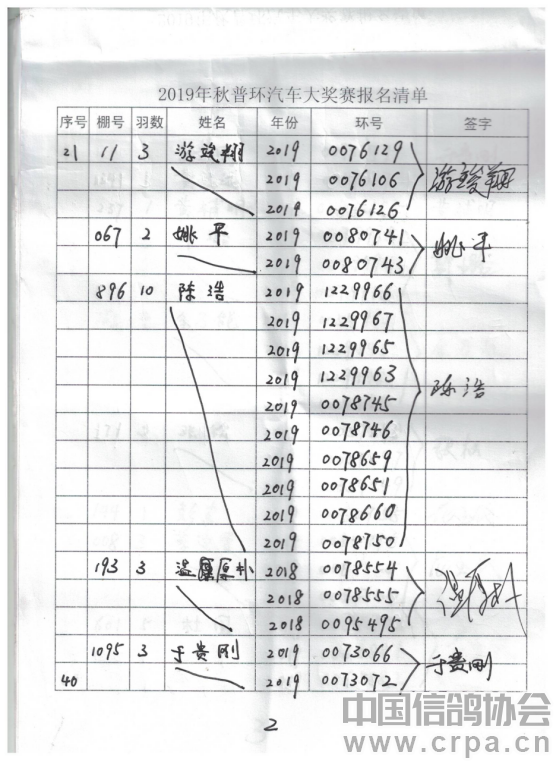 2019年秋普环汽车大奖赛报名清单
序号 棚号 羽数 姓名 年份 环号 签字
21 11 3 游竣翔 2019 0076129
2019 0076106 游竣翔
2019 0076126
067 2 姚平 2019 0080741 姚平
2019 0080743
896 10 陈浩 2019 1229966
2019 1229967
2019 1229965
2019 1229963 陈浩
2019 0078745
2019 0078746
2019 0078659
2019 0078651
2019 0078660
2019 0078750
193 3 温原朴 2018 0078554
2018 0078555
2018 0095495
1095 3 于贵刚 2019 0073066 于贵刚
40 2019 0073072
2
中国信鸽协会
www.crpa.cn